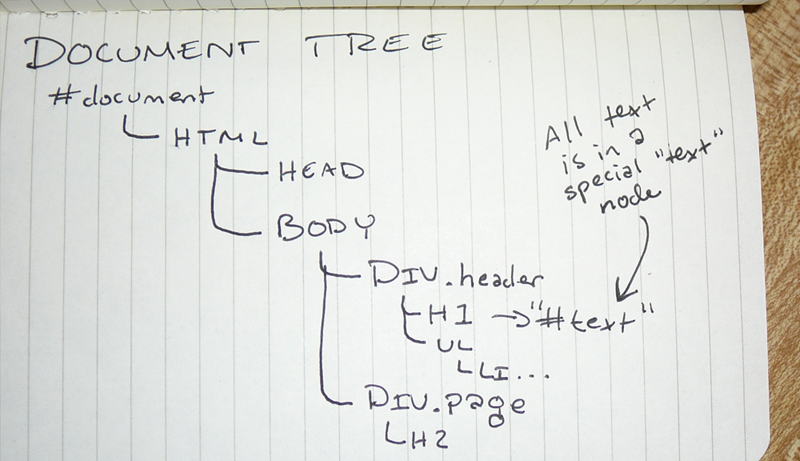 DOCUMENT TREE
#document
HTML
HEAD
BODY
DIV.header
H1 → "#text"
UL
LI...
DIV.page
H2
All text
is in a
special "text"
node